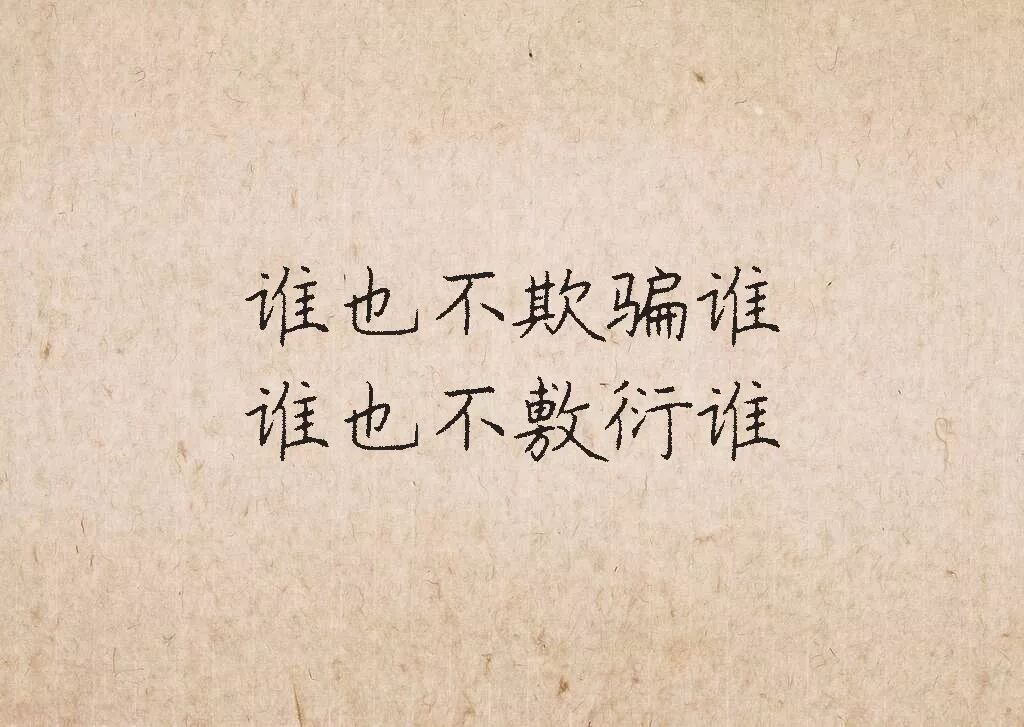 谁也不欺骗谁
谁也不敷衍谁